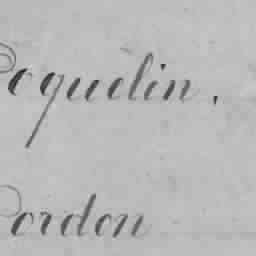 Coquelin.
Cordon